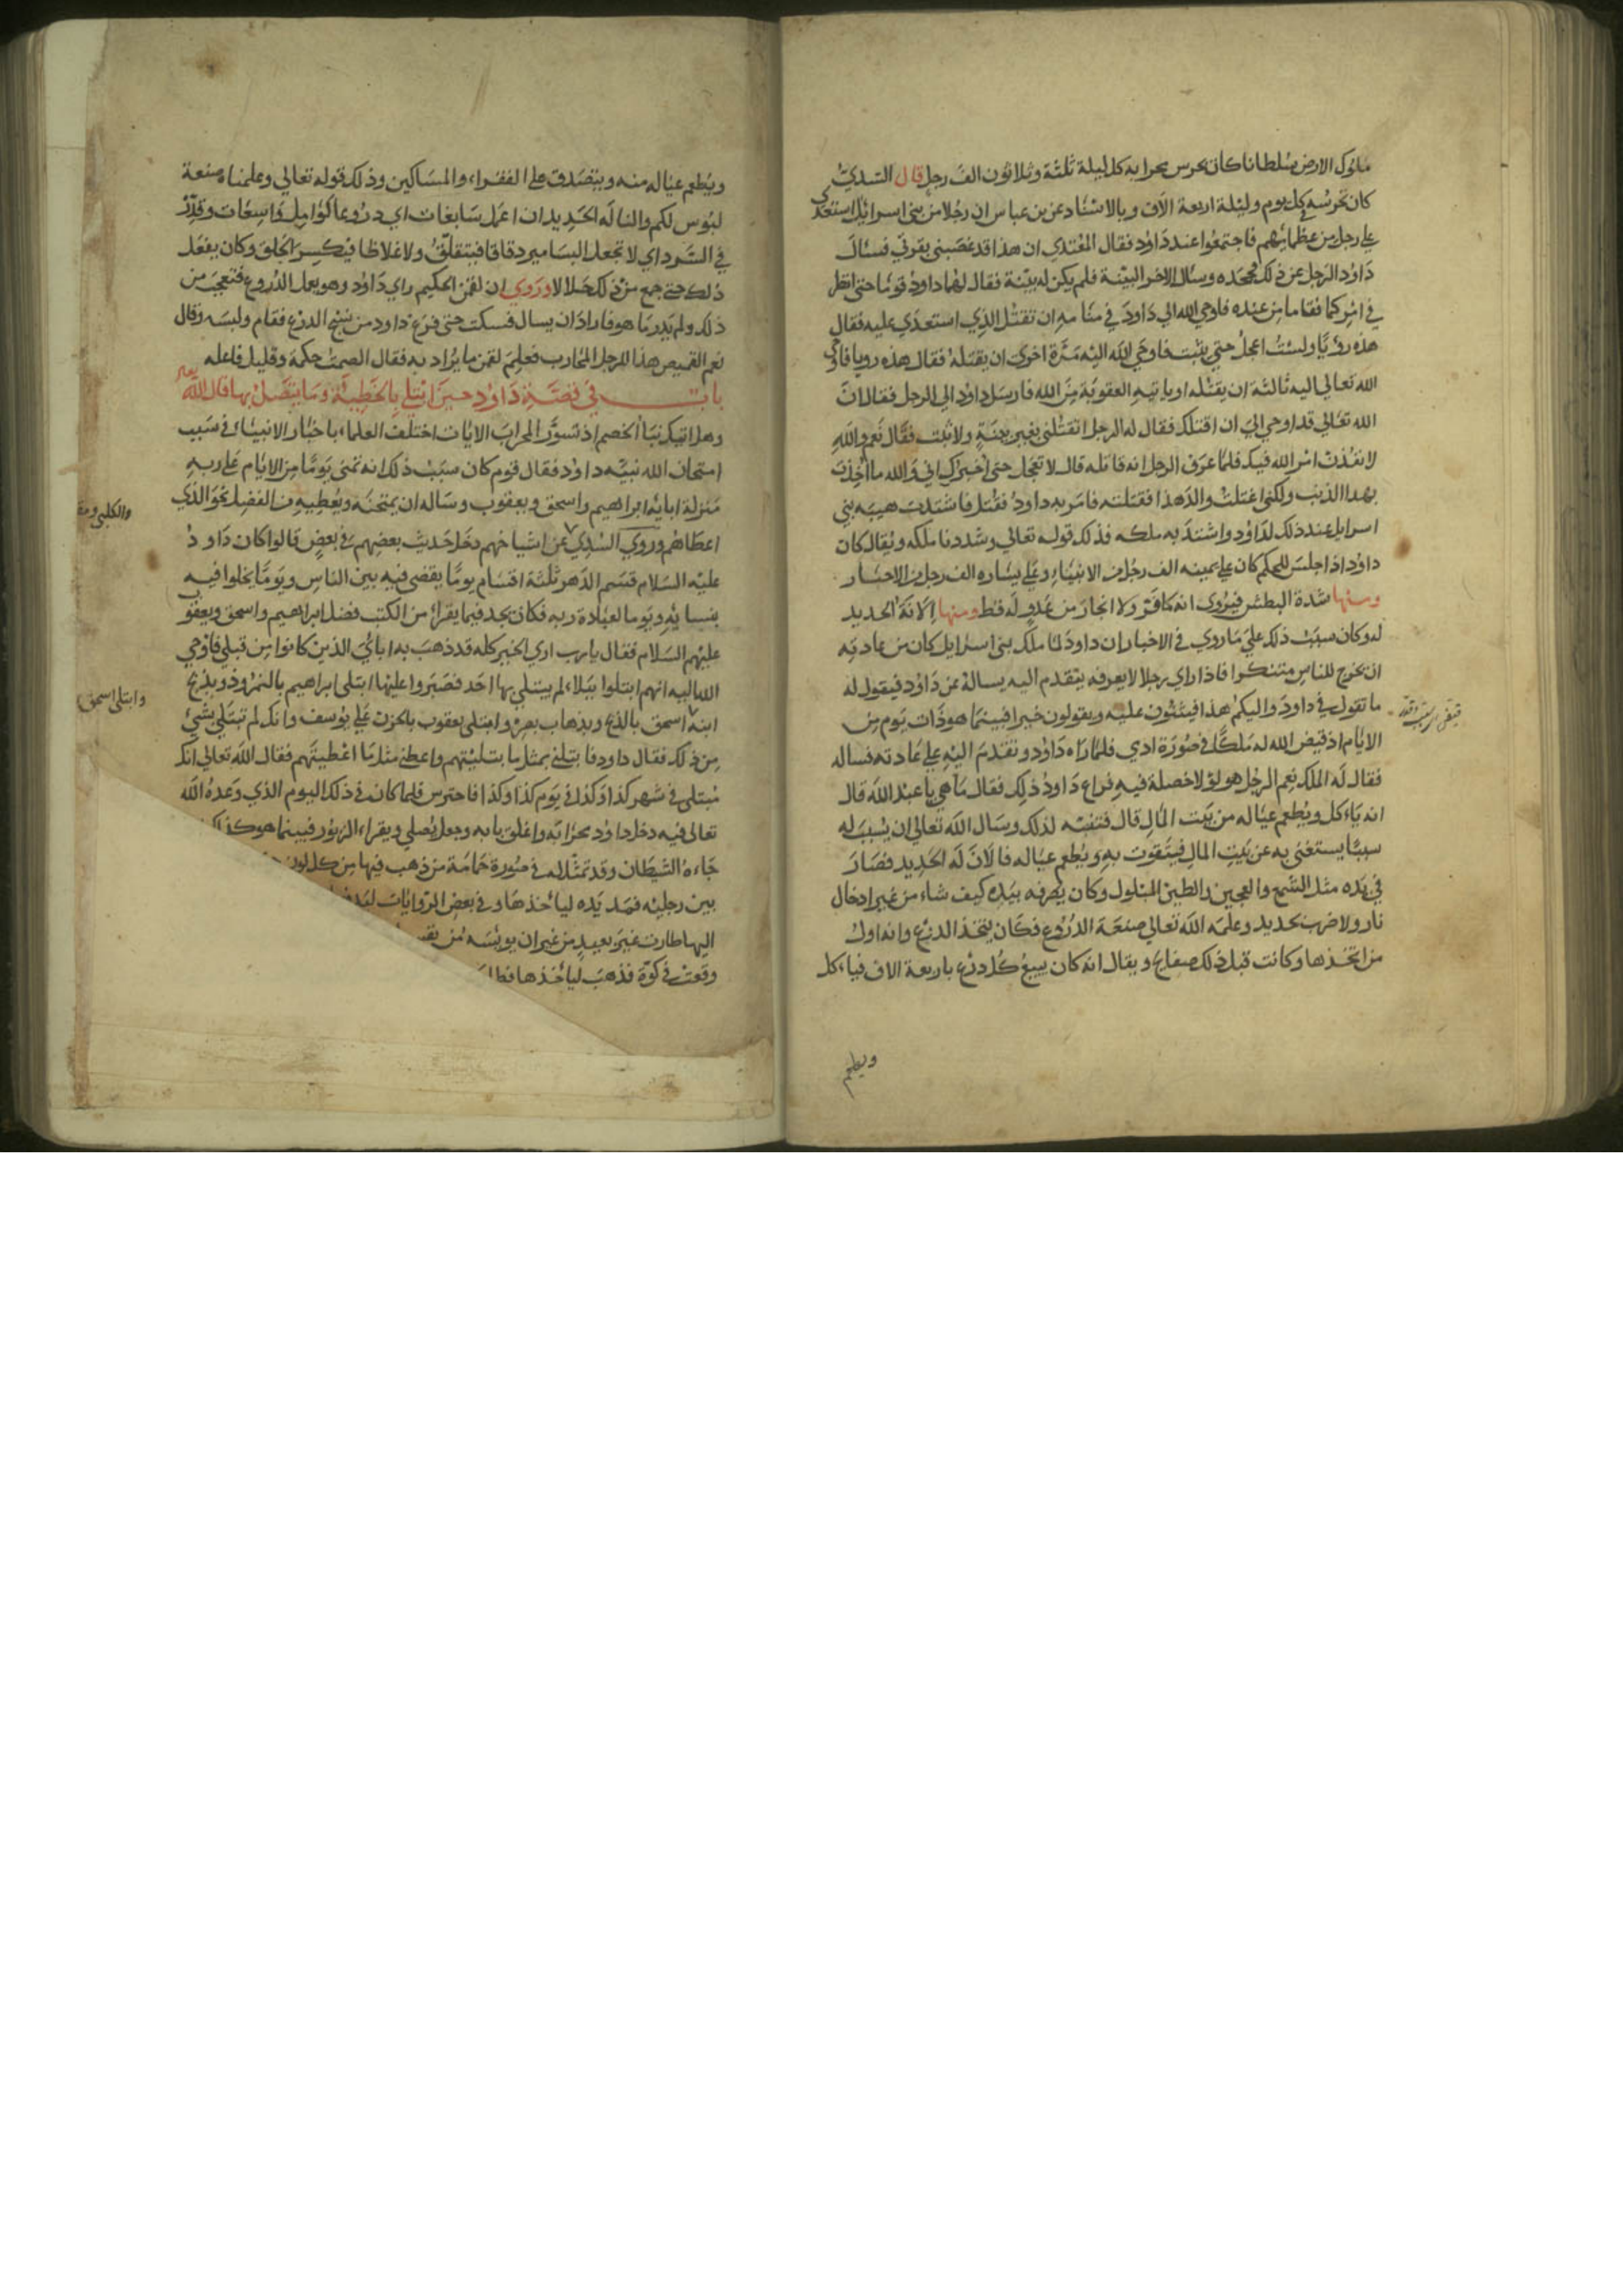 ملوك الارض سلطانا كان يحرس محرابه كل ليلة ثلثة وثلاثون الف رجل قال السدي
كان يحرسه كل يوم وليلة اربعة الاف وبالاسناد عن بن عباس ان رجلا من بني اسرائيل استعدى
علي رجل من عظمائهم فاجتمعوا عند داود فقال المعتدي ان هذا قد غصبني بقرتي فسئال
داود الرجل عن ذلك فجحده وسئال الاخر البينة فلم يكن له بينة فقال لهما داود قوما حتى انظر
في امركما فقاما من عنده فاوحي الله الي داود في منامه ان تقتل الذي استعدي عليه فقال
هذه رؤيا ولست اعجل حتي يثبت فاوحي الله اليه مرة اخرى ان يقتله فقال هذه رويا فاوحي
الله تعالي اليه ثالثة ان يقتله او ياتيه العقوبة من الله فارسل داود الي الرجل فقال ان
الله تعالي قد اوحي الي ان اقتلك فقال له الرجل اتقتلني بغير بينة ولا ثبت فقال نعم والله
لانفذن امر الله فيك فلما عرف الرجل انه قاتله قال لا تعجل حتي اخبرك اني والله ما اخذت
بهذا الذنب ولكني اغتلت والد هذا فقتلته فامر به داود فقتل فاشتدت هيبه بني
اسرايل عند ذلك لداود واشتد به ملكه فذلك قوله تعالي وشددنا ملكه ويقال كان
داود اذا جلس للحكم كان علي يمينه الف رجل من الانبياء وعلي يساره الف رجل من الاحبار
ومنها شدة البطش فيروى انه ما فر ولا انحاز من عدو له قط ومنها الانة الحديد
له وكان سبب ذلك علي ما روي في الاخبار ان داود لما ملك بني اسرايل كان من عادته
ان يخرج للناس متنكرا فاذا راي رجلا لا يعرفه يتقدم اليه يساله عن داود فيقول له
ما تقول في داود واليكم هذا فيثنون عليه ويقولون خيرا فبينما هو ذات يوم من
الايام اذ قيض الله له ملكا في صورة ادمي فلما راه داود وتقدم اليه علي عادته فساله
فقال له الملك نعم الرجل هو لولا خصلة فيه فراع داود ذلك فقال ما هي يا عبد الله قال
انه ياءكل ويطعم عياله من بيت المال قال فتنبه لذلك وسال الله تعالي ان يسبب له
سببا يستغني به عن بيت المال فيتقوت به ويطعم عياله فالان له الحديد فصار
في يده مثل الشمع والعجين والطين المبلول وكان يصرفه بيده كيف شاء من غير ادخال
نار ولا ضرب بحديد وعلمه الله تعالي صنعة الدروع فكان يتخذ الدرع وانه اول
من اتخذها وكانت قبل ذلك صفايح ويقال انه كان يبيع كل درع باربعة الاف فياءكل
ويطعم
ويطعم عياله منه ويتصدق علي الفقراء والمساكين وذلك قوله تعالي وعلمناه صنعة
لبوس لكم والنا له الحديد ان اعمل سابغات اي دروعا كوامل واسعات وقدر
في السرد اي لا تجعل المسامير دقاقا فيتقلق ولا غلاظا فيكسر الحلق وكان يفعل
ذلك حتي جمع من ذلك حلالا وروي ان لقمن الحكيم راي داود وهو يعمل الدروع فتعجب من
ذلك ولم يدر ما هو فاراد ان يسال فسكت حتي فرغ داود من نسج الدرع فقام ولبسه وقال
نعم القميص هذا للرجل المحارب فعلم لقمن ما يراد به فقال الصمت حكمة وقليل فاعله
باب في قصة داود حين ابتلي بالخطيئة وما يتصل بها قال الله تعالى
وهل اتيك نبا الخصم اذ تسور المحراب الايات اختلف العلماء باخبار الانبياء في سبب
امتحان الله نبيه داود فقال قوم كان سبب ذلك انه تمنى يوما من الايام علي ربه
منزلة ابايه ابراهيم واسحق ويعقوب وساله ان يمتحنه ويعطيه من الفضل نحو الذي
اعطاهم وروي السدي عن اشياخهم دخل حديث بعضهم في بعض قالوا كان داود
والكلبي
عليه السلام قسم الدهر ثلثة اقسام يوما يقضى فيه بين الناس ويوما يخلوا فيه
بنسايه ويوما لعبادة ربه فكان يجد فيما يقراء من الكتب فضل ابراهيم واسحق ويعقو
عليهم السلام فقال يارب اري الخير كله قد ذهب به اباي الذين كانوا من قبلي فاوحي
الله اليه انهم ابتلوا ببلاء لم يبتلي بها احد فصبروا عليها ابتلى ابراهيم بالنمرود وبذبح
ابنه اسحق بالذبح وبذهاب بصره وابتلى يعقوب بالحزن علي يوسف وانك لم تبتلي بشيئ
وابتلي اسحق
من ذلك فقال داود فابتلني بمثل ما بتليتهم واعطني مثل ما اعطيتهم فقال الله تعالي انك
مبتلى في شهر كذا وكذا في يوم كذا وكذا فاحترس فلما كان في ذلك اليوم الذي وعده الله
تعالى فيه دخل داود محرابه واغلق بابه وجعل يصلي ويقراء الزبور فبينما هو كذ
جاءه الشيطان وقد تمثل له في صورة حمامة من ذهب فيها من كل لون
بين رجليه فمد يده لياءخذها وفي بعض الروايات
اليها طارت غير بعيد من غير ان يويسه من
وقعت في كوة فذهب لياءخذها